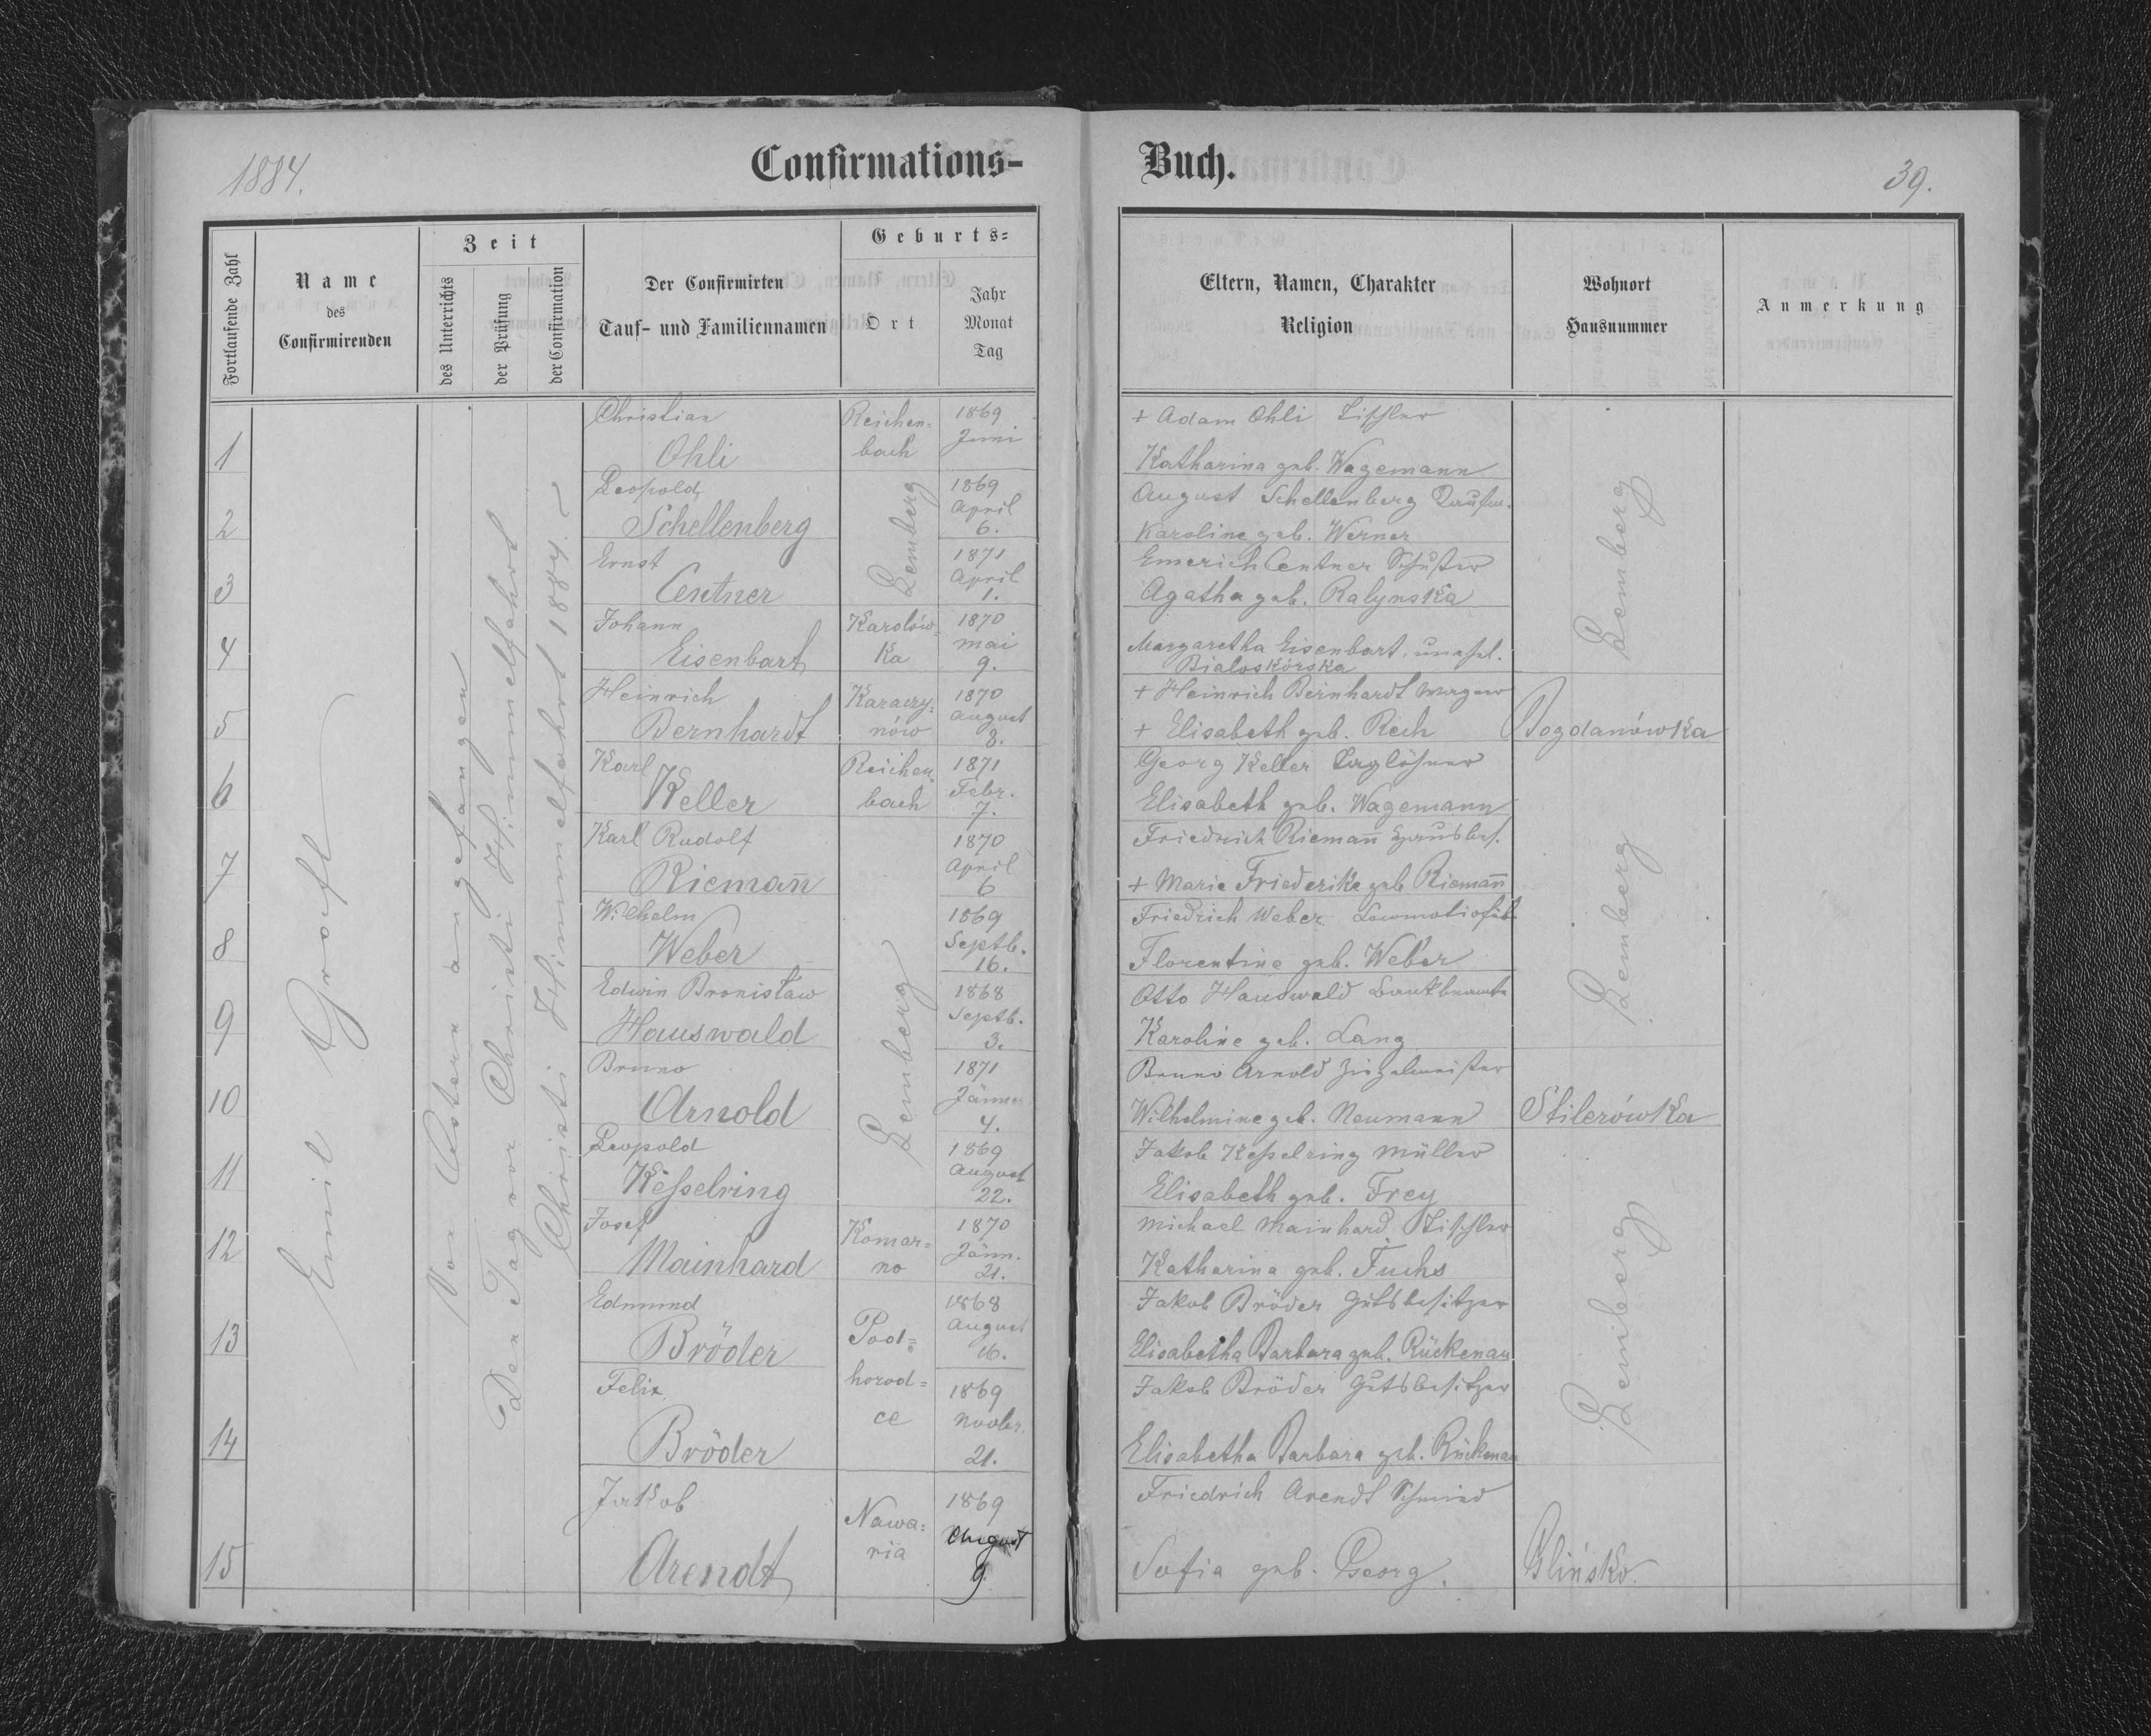 1884.
Confirmations-
Buch.
39.
Fortlaufende Zahl
Name
des
Confirmirenden
Zeit
des Unterrichts
der Prüfung
der Confirmation
Der Confirmirten
Tauf- und Familiennamen
Geburts-
Ort
Jahr
Monat
Tag
Eltern, Namen, Charakter
Religion
Wohnort
Hausnummer
Anmerkung
Emil Graefl
Von Ostern angefangen
Den Tag vor Christi Himmelfahrt
Christi Himmelfahrt 1884.
1
Christian
Ohli
Reichen-
bach
1869
Juni
+ Adam Ohli Tischler
Katharina geb. Wagemann
Lemberg
2
Leopold
Schellenberg
Lemberg
1869
April
6.
August Schellenberg
Karoline geb. Werner
3
Ernst
Centner
1871
April
1.
Emerich Centner Schuster
Agatha geb. Ralynska
4
Johann
Eisenbart
Karolów-
ka
1870
Mai
9.
Margaretha Eisenbart, unehel.
Bialoskórska
5
Heinrich
Bernhardt
Karaczy-
nów
1870
August
8.
+ Heinrich Bernhardt Wagner
+ Elisabeth geb. Rech
Bogdanówka
6
Karl
Keller
Reichen-
bach
1871
Febr.
7.
Georg Keller Taglöhner
Elisabeth geb. Wagemann
Lemberg
7
Karl Rudolf
Riemañ
Lemberg
1870
April
6
Friedrich Riemañ Hausbes.
+ Marie Friederike geb. Riemañ
8
Wilhelm
Weber
1869
Septb.
16.
Friedrich Weber
Florentine geb. Weber
9
Edwin Bronisław
Hauswald
1868
Septb.
3.
Otto Hauswald Bankbeamte
Karoline geb. Lang
10
Bruno
Arnold
1871
Jänner
4.
Bruno Arnold Ziegelmeister
Wilhelmine geb. Neumann
Stilerówka
11
Leopold
Kesselring
1869
August
22.
Jakob Kesselring Müller
Elisabeth geb. Frey
Lemberg
12
Josef
Mainhard
Komar-
no
1870
Jänn.
21.
Michael Mainhard Tischler
Katharina geb. Fuchs
13
Edmund
Bröder
Pod-
horod-
ce
1868
August
16.
Jakob Bröder Gutsbesitzer
Elisabetha Barbara geb. Rückenau
14
Felix
Bröder
1869
Novbr.
21.
Jakob Bröder Gutsbesitzer
Elisabetha Barbara geb. Rückenau
15
Jakob
Arendt
Nawa-
ria
1869
August
9.
Friedrich Arendt Schmied
Sofia geb. Georg.
Glińsko.